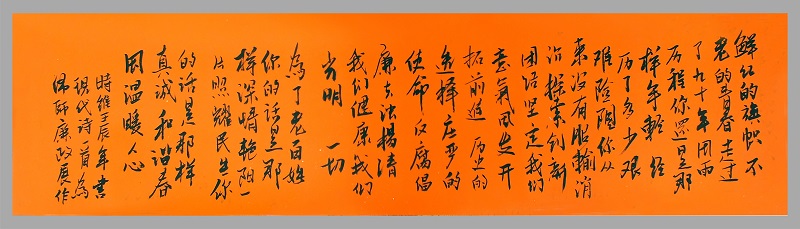 鲜红的旗帜不
老的青春走过
了九十年风雨
历程你还是那
样年轻 经
历了多少艰
难险阻你从
来没有服输消
沉探索创新
团结坚定我们
意气风发开
拓前进 历史的
选择庄严的
使命反腐倡
廉去浊扬清
我们健康我们
光明 一切
为了老百姓
你的话是那
样深情艳阳一
片照耀民生你
的话是那样
真诚和谐春
风温暖人心
时维壬辰年书
现代诗一首为
佛师廉政展作